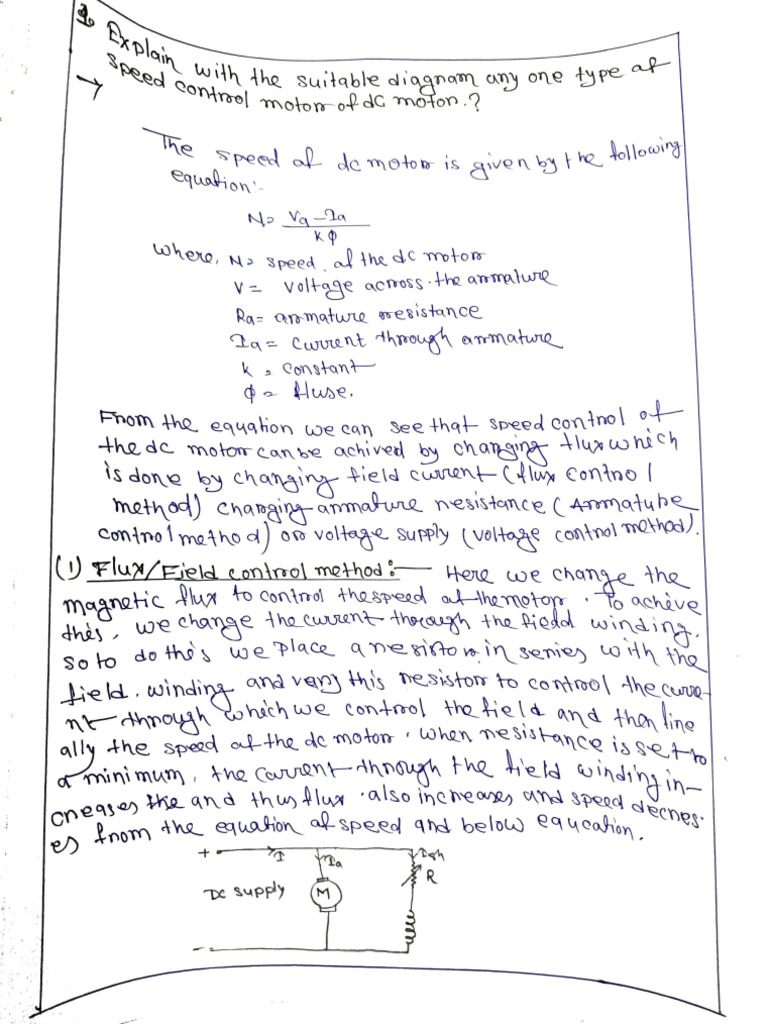 1. Explain with the suitable diagram any one type of
speed control motor of dc motor.?
→
The speed of dc motor is given by the following
equation:-
N= Va-Ia / kφ
where, N= speed. of the dc motor
V = voltage across the armature
Ra= armature resistance
Ia= current through armature
k = constant
φ = fluse.
From the equation we can see that speed control of
the dc motor can be achived by changing flux which
is done by changing field current (flux control
method) changing armature resistance (Armature
control method) or voltage supply (voltage control method).
(1) Flux/Field control method:- Here we change the
magnetic flux to control the speed of the motor. To achive
this, we change the current through the fiedd winding.
so to do this we place a resistor in series with the
field. winding and vary this resistor to control the curre-
nt through which we control the field and then fine
ally the speed of the dc motor. when resistance is set to
a minimum, the current through the field winding in-
creases the and thus flux. also increases and speed decres-
es from the equation of speed and below equcation.
+ I Ia Ish
R
DC supply M
-